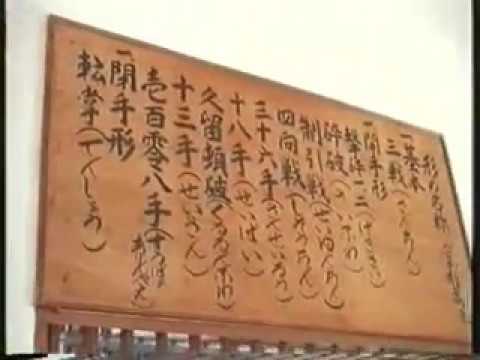 形の名称
一基本
三戦(さんちん)
一開手形
撃砕一二(げきさい)
砕破
制引戦(せいゆんちん)
四向戦(しそうちん)
三十六手(さんせいるう)
十八手(せいぱい)
久留頓破
十三手(せいさん)
壱百零八手
一閉手形
転掌(てんしょう)